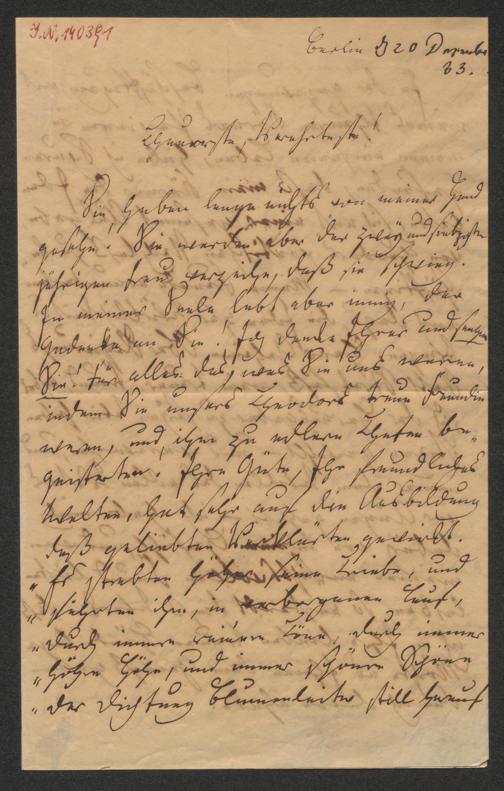 I.N. 140391
Berlin d 20 Dezember
33.
Theuerste, Verehrteste!
Sie haben lange nichts von meiner Hand
gesehn! Sie werden aber der zwey und siebzig
jährigen Frau verzeihn, daß sie schwieg.
In meiner Seele lebt aber innig, der
Gedanke an Sie! Ich denke Ihrer und segne
Sie! für alles das, was Sie uns waren,
indem Sie unsers Theodors treue Freundin
waren, und ihn zu edlern Thaten be-
geisterten. Ihre Güte, Ihr freundliches
Walten, hat sehr auf die Ausbildung
deß geliebten Verklärten gewirkt.
„Es strebten höher seine Triebe, und
„führten ihn, in verborgenen Lauf,
„durch immer reinre Töne, durch immer
„höhre Höhn, und immer schönre Schöne
„der Dichtung Blumenleiter still herauf